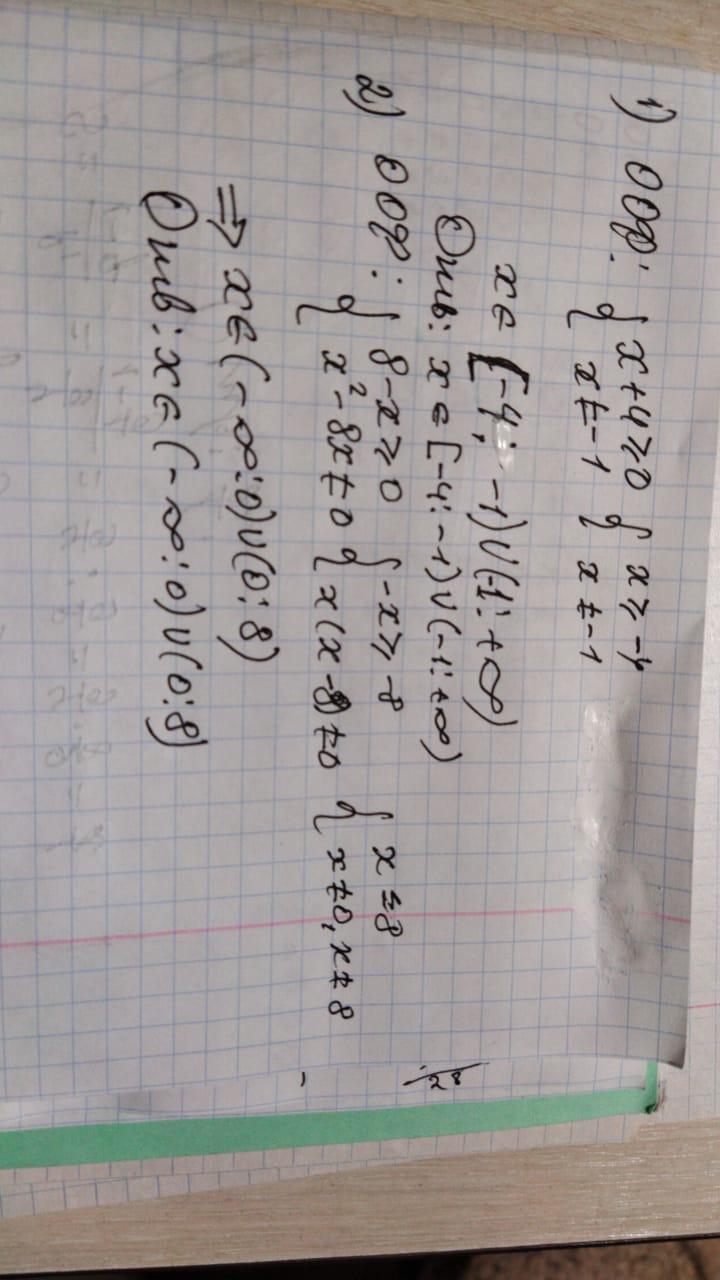 1) ООФ: { x+4⩾0 { x⩾-4
x≠-1 x≠-1
x∈ [-4; -1)∪(-1:+∞)
Отв: x∈[-4:-1)∪(-1:+∞)
2) ООФ: { 8-x⩾0 { -x⩾-8 { x≤8
x²-8x≠0 x(x-8)≠0 x≠0, x≠8
⇒ x∈(-∞:0)∪(0:8)
Отв: x∈(-∞:0)∪(0:8)